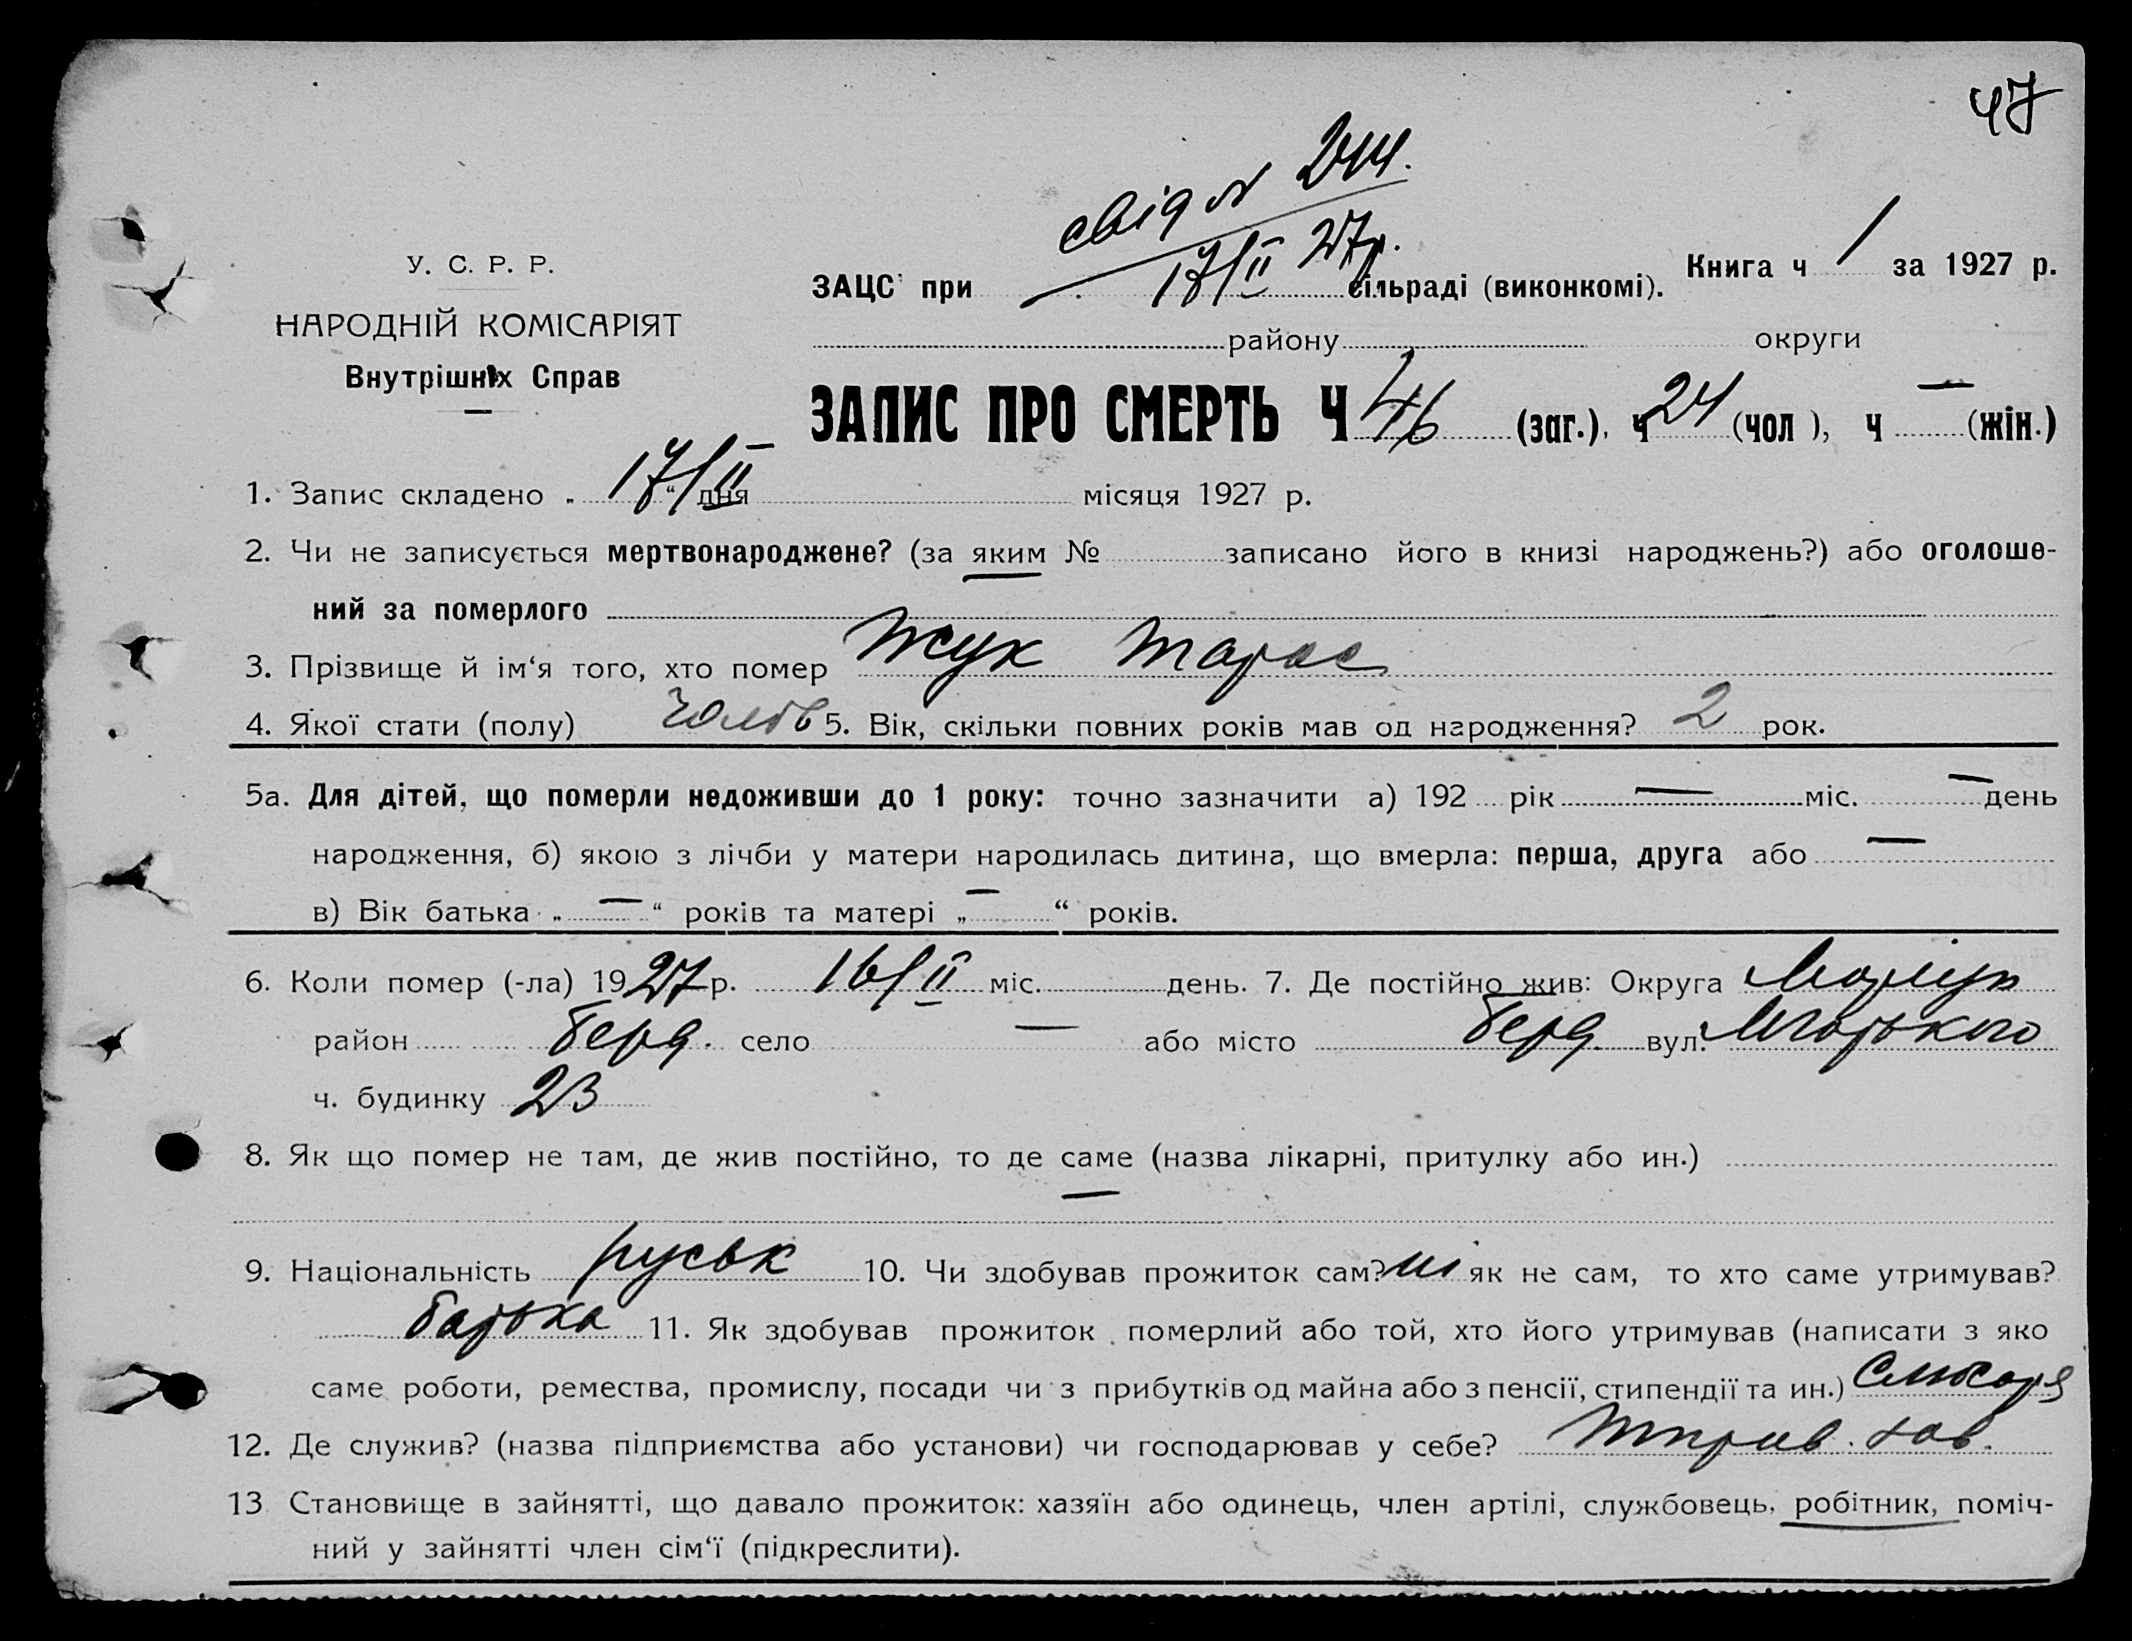 47
свід N 244.
17/II 27р.
У. С. Р. Р.
НАРОДНІЙ КОМІСАРІЯТ
Внутрішніх Справ
ЗАЦС при сільраді (виконкомі). Книга ч 1 за 1927 р.
району округи
ЗАПИС ПРО СМЕРТЬ Ч 46 (заг.), ч 24 (чол), ч — (жін.)
1. Запис складено „ 17/II “ дня місяця 1927 р.
2. Чи не записується мертвонароджене? (за яким № записано його в книзі народжень?) або оголоше-
ний за померлого
3. Прізвище й ім‘я того, хто помер Жук Тарас
4. Якої стати (полу) чолов 5. Вік, скільки повних років мав од народження? 2 рок.
5а. Для дітей, що померли недоживши до 1 року: точно зазначити а) 192 рік — міс. — день
народження, б) якою з лічби у матери народилась дитина, що вмерла: перша, друга або —
в) Вік батька „ — “ років та матері „ — “ років.
6. Коли помер (-ла) 1927 р. 16/II міс. день. 7. Де постійно жив: Округа Маріуп
район Берд. село — або місто Берд. вул. М Горького
ч. будинку 23
8. Як що помер не там, де жив постійно, то де саме (назва лікарні, притулку або ин.)
—
9. Національність руськ 10. Чи здобував прожиток сам? ні як не сам, то хто саме утримував?
батько 11. Як здобував прожиток померлий або той, хто його утримував (написати з яко
саме роботи, ремества, промислу, посади чи з прибутків од майна або з пенсії, стипендії та ин.) Слюсаря
12. Де служив? (назва підприємства або установи) чи господарював у себе?
13 Становище в зайнятті, що давало прожиток: хазяїн або одинець, член артілі, службовець, робітник, поміч-
ний у зайнятті член сім‘ї (підкреслити).